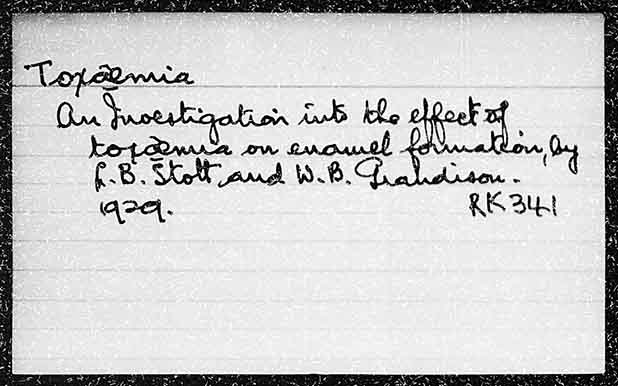 Toxæmia
An Investigation into the effect of
toxæmia on enamel formation, by
L.B. Stott, and W.B. Grandison.
1929. RK341